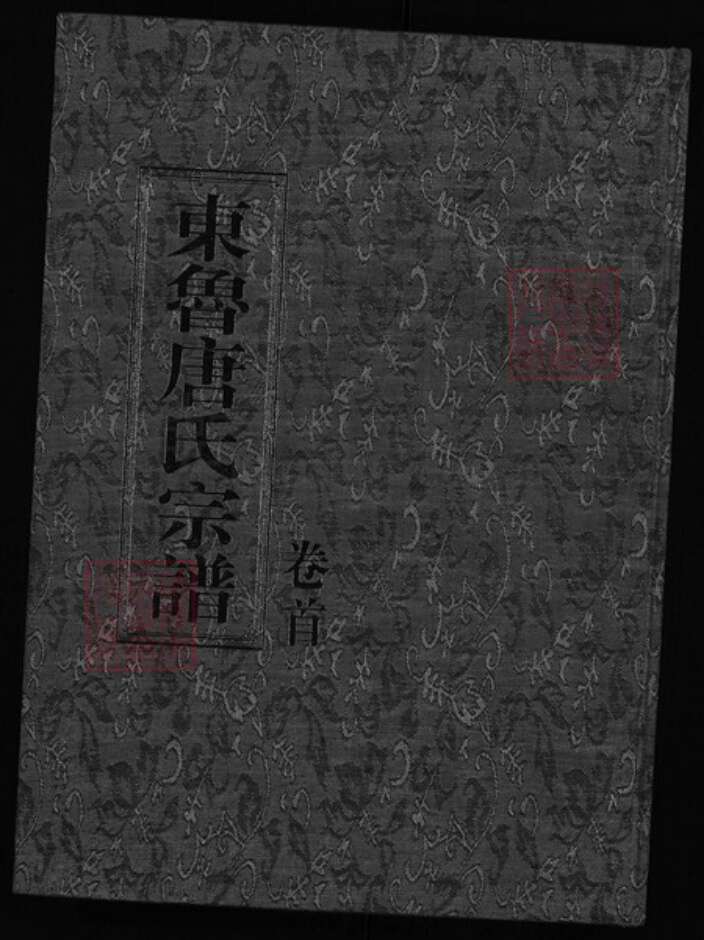 東魯唐氏宗譜
卷首